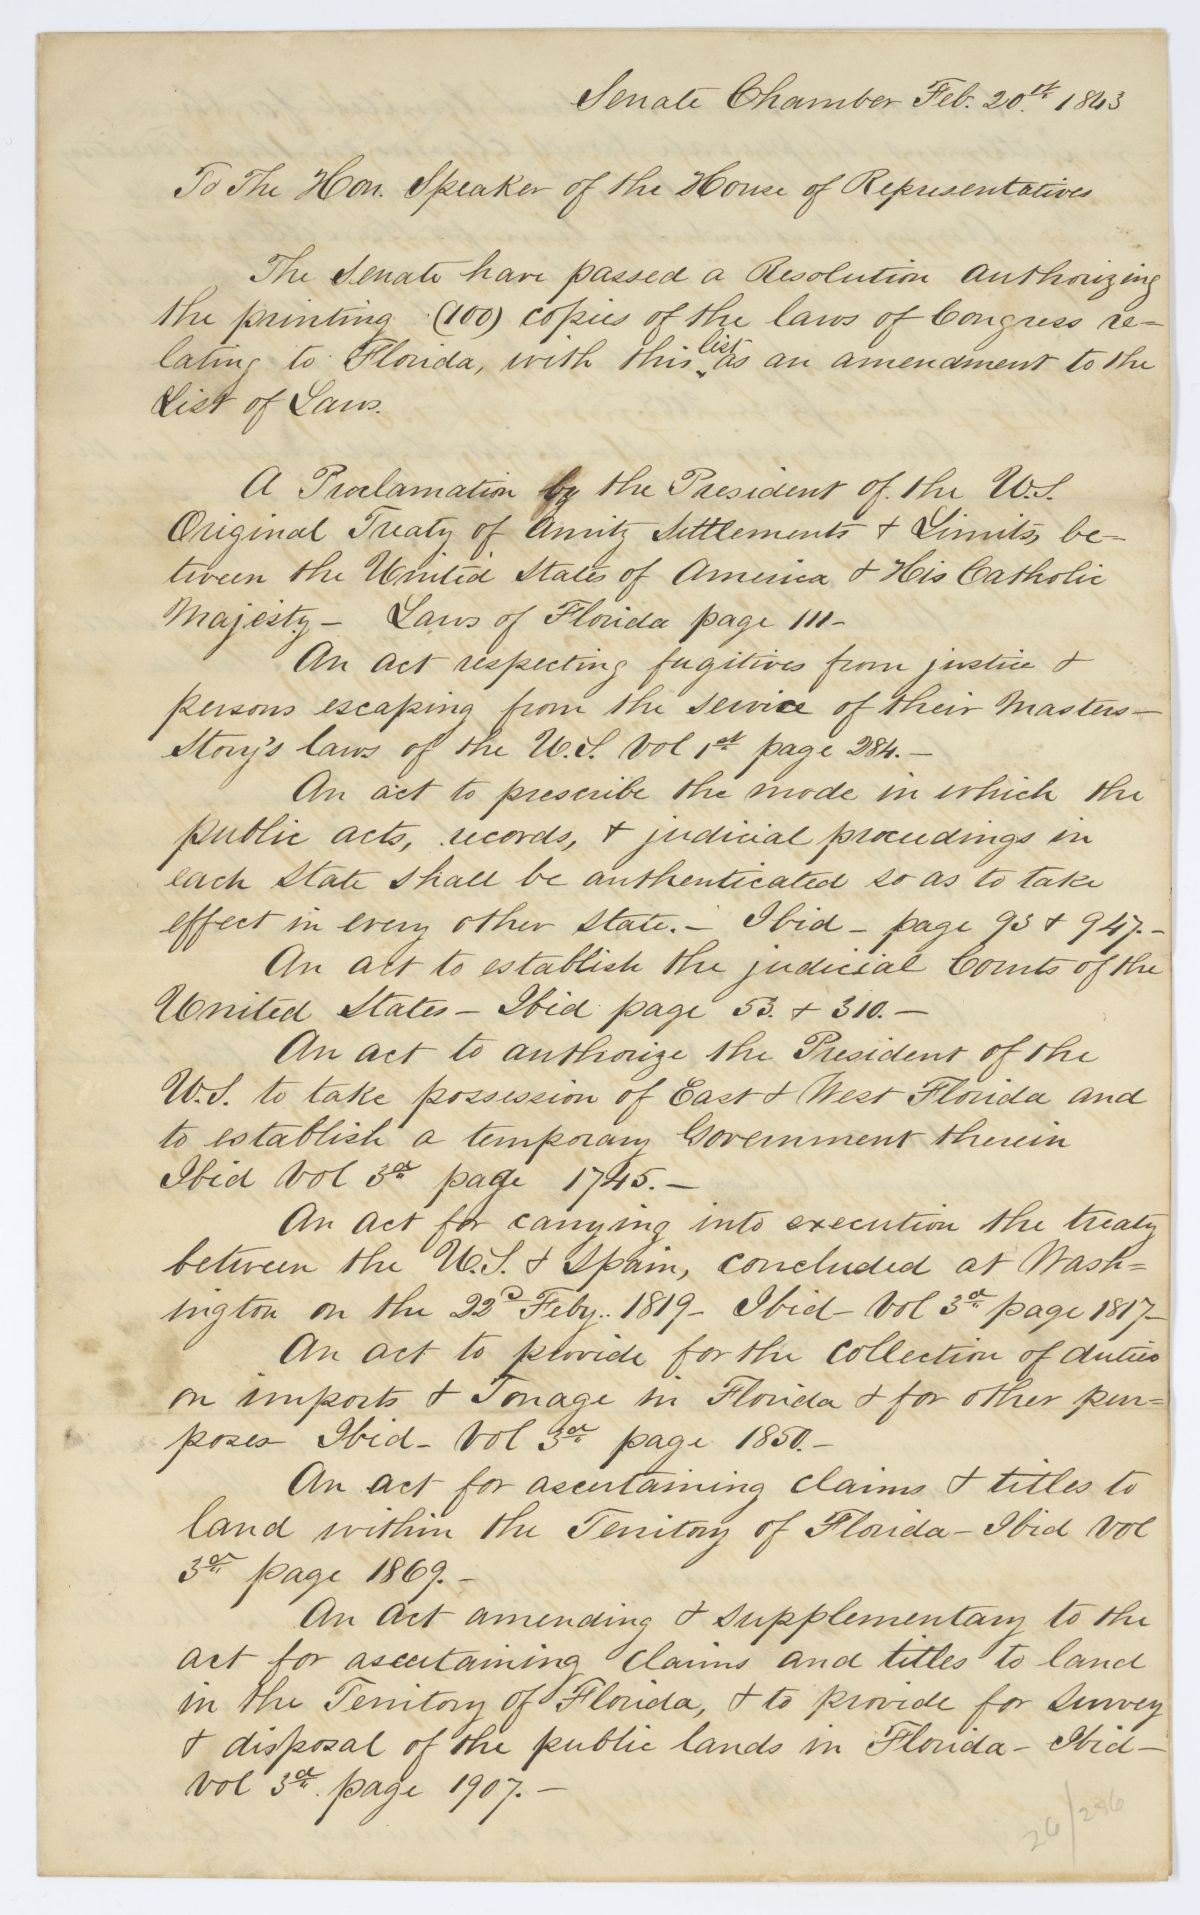 Senate Chamber Feb. 20th 1843
To The Hon. Speaker of the House of Representatives
The Senate have passed a Resolution authorizing
the printing (100) copies of the laws of Congress re-
lating to Florida, with this list as an amendment to the
List of Laws.
A Proclamation by the President of the U.S.
Original Treaty of Amity Settlements & Limits, be-
tween the United States of America & His Catholic
Majesty - Laws of Florida page 111-
An act respecting fugitives from justice &
persons escaping from the service of their Masters-
Story's laws of the U.S. Vol 1st page 284.-
An act to prescribe the mode in which the
public acts, records, & judicial proceedings in
each State shall be authenticated so as to take
effect in every other State.- Ibid - page 93 & 947.-
An act to establish the judicial Courts of the
United States - Ibid page 53. & 310.-
An act to authorize the President of the
U.S. to take possession of East & West Florida and
to establish a temporary Government therein
Ibid Vol 3rd page 1745.-
An act for carrying into execution the treaty
between the U.S. & Spain, concluded at Wash=
ington on the 22d Feby. 1819- Ibid- Vol 3rd page 1817-
An act to provide for the collection of duties
on imports & Tonage in Florida & for other pur=
poses Ibid- Vol 3rd page 1850.-
An act for ascertaining claims & titles to
land within the Territory of Florida - Ibid Vol
3rd page 1869.-
An Act amending & supplementary to the
act for ascertaining claims and titles to land
in the Territory of Florida, & to provide for survey
& disposal of the public lands in Florida - Ibid-
Vol 3rd page 1907.-
26/286